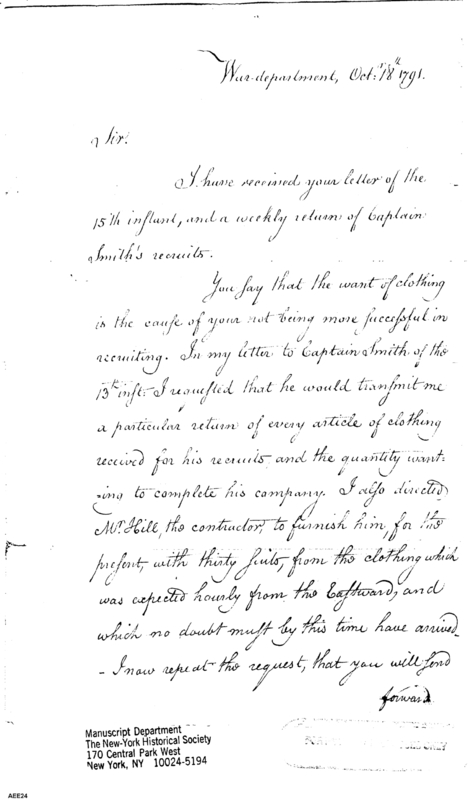 War-department, Oct.r 18th 1791.
Sir.
I have received your letter of the
15th instant, and a weekly return of Captain
Smith's recruits.
You say that the want of clothing
is the cause of your not being more successful in
recruiting. In my letter to Captain Smith of the
13th inst. I requested that he would transmit me
a particular return of every article of clothing
received for his recruits and the quantity want-
-ing to complete his company. I also directed
Mr. Hill, the contractor, to furnish him, for the
present, with thirty suits, from the clothing which
was expected hourly from the Eastward, and
which no doubt must by this time have arrived
- I now repeat the request, that you will send
forward
Manuscript Department
The New-York Historical Society
170 Central Park West
New York, NY 10024-5194
ONLY
AEE24